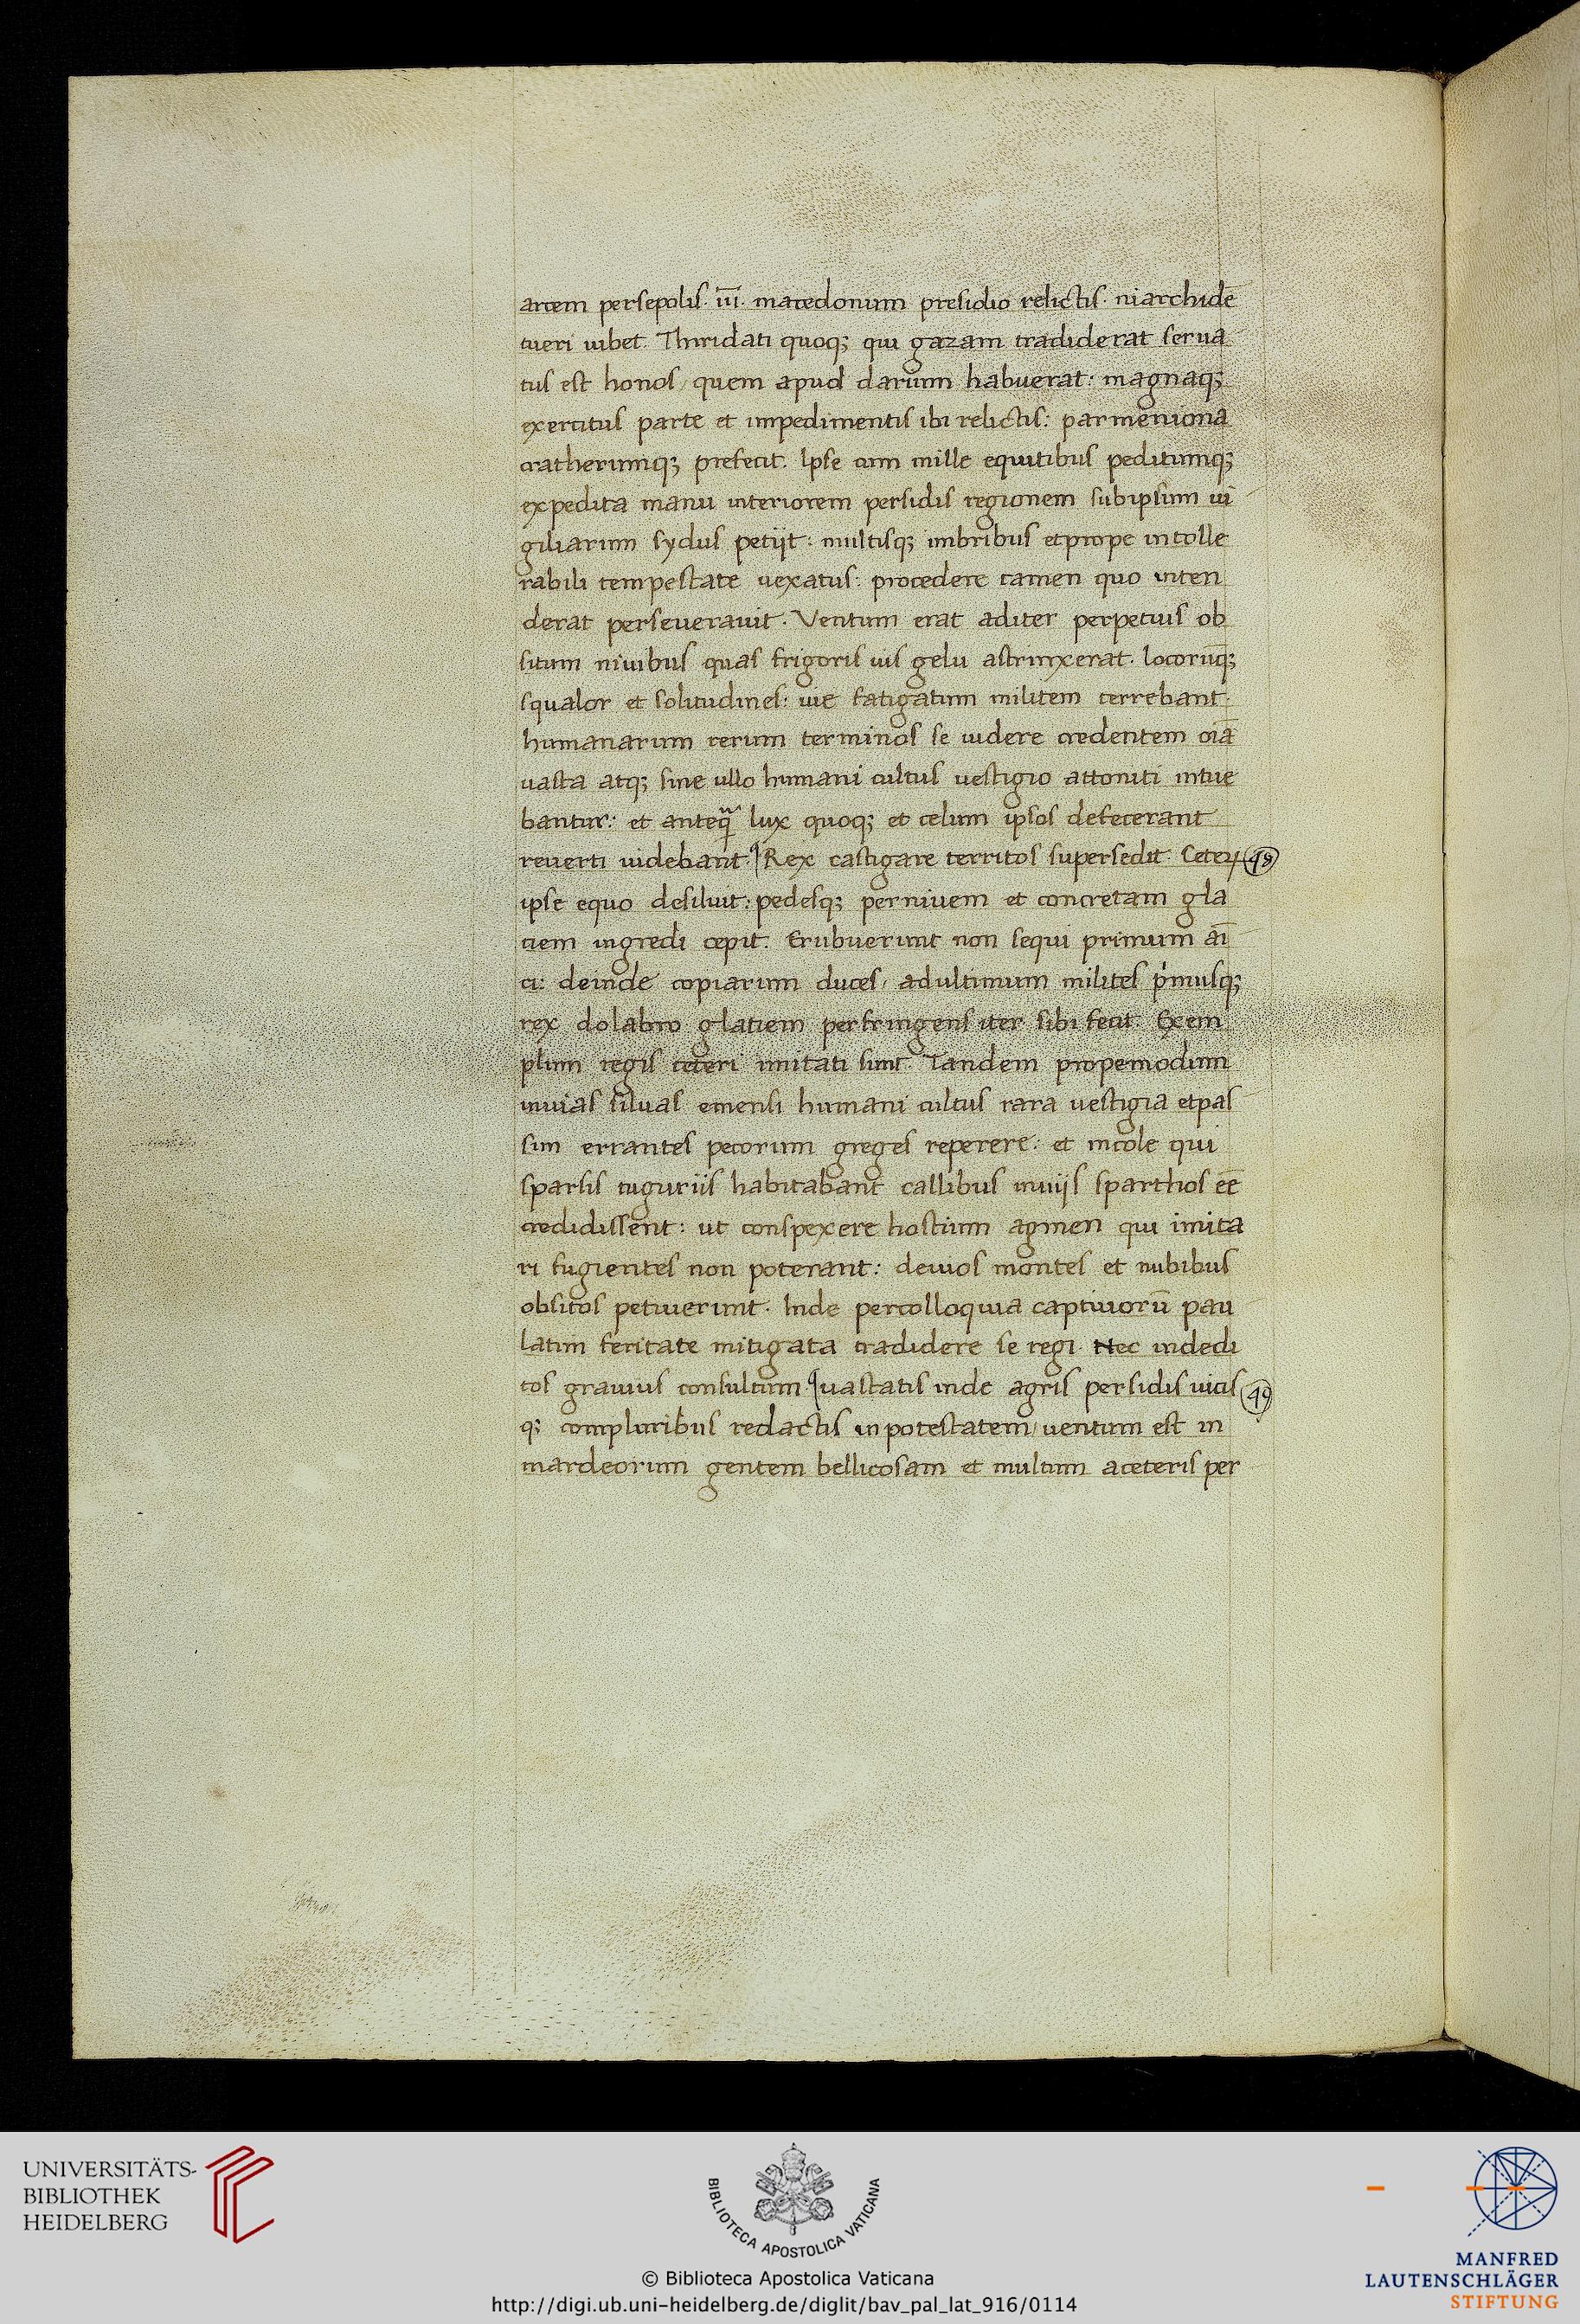 arcem persepolis. iii̅. macedonum presidio relictis. niarchidē
tueri iubet. Thiridati quoq; qui gazam tradiderat serua
tus est honos / quem apud darium habuerat: magnaq;
exercitus parte et impedimentis ibi relictis: parmeniona
cratherumq; prefecit. Ipse cum mille equitibus peditumq;
expedita manu interiorem persidis regionem subipsum ui
giliarum sydus petijt: multisq; imbribus etprope intolle
rabili tempestate uexatus: procedere tamen quo inten
derat perseuerauit. Ventum erat aditer perpetuis ob
situm niuibus quas frigoris uis gelu astrinxerat. locorūq;
squalor et solitudines: uie fatigatum militem terrebant.
humanarum rerum terminos se uidere credentem oīa
uasta atq; sine ullo humani cultus uestigio attoniti intue
bantur: et anteq̄ lux quoq; et celum ipsos defecerant
reuerti uidebant. Rex castigare territos supersedit. Ceteꝝ 48
ipse equo desiluit: pedesq; perniuem et concretam gla
ciem ingredi cepit. Erubuerunt non sequi primum aī
ci: deinde copiarum duces / adultimum milites pͥmusq;
rex dolabro glaciem perfringens iter sibi fecit. Exem
plum regis ceteri imitati sunt. Tandem propemodum
inuias siluas emensi humani cultus rara uestigia etpas
sim errantes pecorum greges reperere: et incole qui
sparsis tuguriis habitabant callibus inuijs sparthos eē
credidissent: ut conspexere hostium agmen qui imita
ri fugientes non poterant: deuios montes et nubibus
obsitos petiuerunt. Inde percolloquia captiuorū pau
latim feritate mitigata tradidere se regi. Nec indedi
tos grauius consultum. uastatis inde agris persidis uicis 49
q; compluribus redactis inpotestatem / uentum est in
mardeorum gentem bellicosam et multum aceteris per
UNIVERSITÄTS-
BIBLIOTHEK
HEIDELBERG
BIBLIOTECA APOSTOLICA VATICANA
© Biblioteca Apostolica Vaticana
http://digi.ub.uni-heidelberg.de/diglit/bav_pal_lat_916/0114
MANFRED
LAUTENSCHLÄGER
STIFTUNG